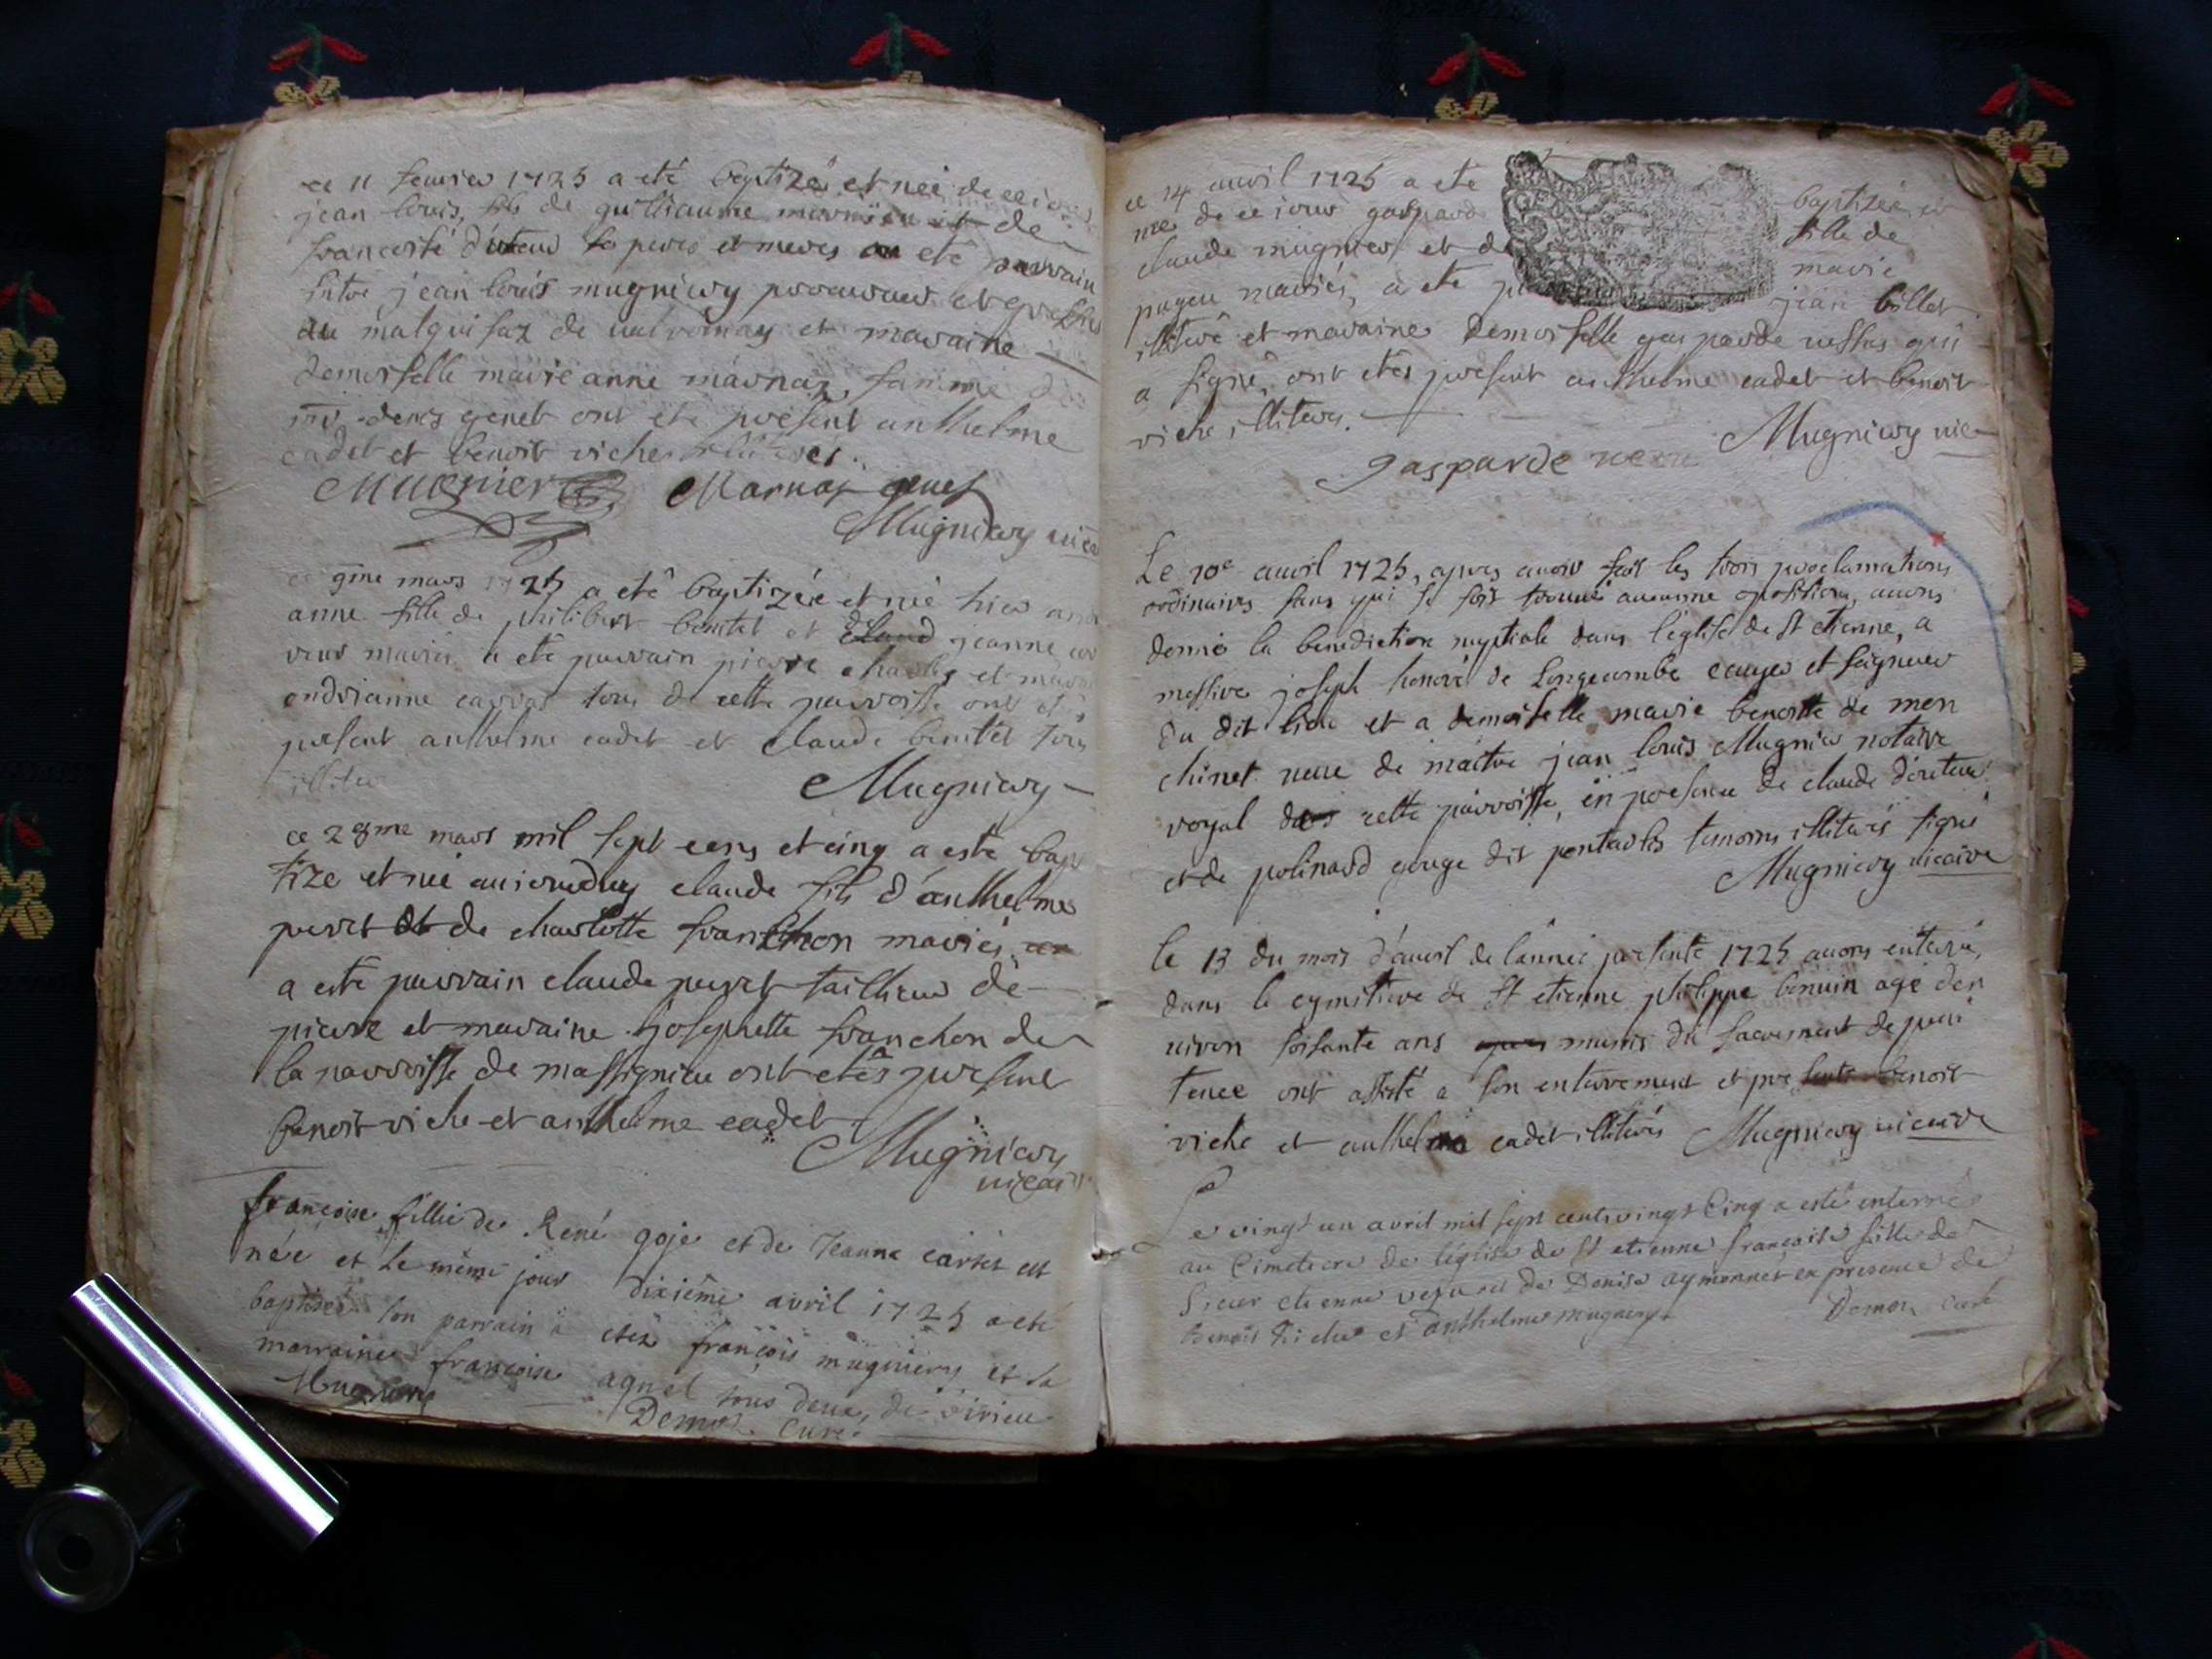 ce 11 feurier 1725 a eté baptizé et neé de ce iour
jean louis, fils de guilliaume et de
francoise d'uteur pères et meres a eté parrain
jean louis mugniery procureur et
du malquisaz de ualromay et maraine
demoiselle marie anne marnaz, famme
denis genet ont eté présent anthelme
cadet et benoit viche illiterés.
Mugnier Marnaz genet
Mugniery uicai
ce 9me mars 1725 a eté baptizée et neé hier
anne fille de philibert bentet et jeanne
mariés a eté parrain pierre charles et
andrianne carrat tous de cette parroisse ont eté
present anthelme cadet et claude bentet tous
illiter
Mugniery
ce 28me mars mil sept cens et cinq a esté bap
tize et neé auiourduy claude fils d'anthelme
peret et de charlotte franchon mariés
a esté parrain claude peret tailleur de
pierre et maraine Josephette franchon de
la parroisse de massignieu ont etés present
benoit viche et anthelme cadet
Mugniery
uicair
francoise fillie de René goje et de Jeanne carret est
née et le même jour dixiême avril 1725 a eté
baptisée son parrain a etéz françois mugniery et sa
marraine francoise agnel tous deux de Sirieu
Mugniery Demoz Curé
ce 14 auril 1725 a ete baptizée et
née de ce iour gasparde fille de
claude mugnier et de marie
pugeu mariés, a ete jean billet
illiteré et maraine demoiselle gasparde qui
a signé, ont etés présent anthelme cadet et benoit
viche illiteres.
Mugniery uic
gasparde
Le 10e auril 1725, apres auoir fait les trois proclamations
ordinaires sans qui se soit trouué aucunne opositions, auons
donné la benediction nuptiale dans l'église de St etienne, a
messire joseph honoré de Longecombe ecuyer et seigneur
du dit lieu et a demoiselle marie benoitte de mon
chinet ueue de maitre jean louis Mugnier notaire
royal de cette parroisse, en presence de claude d'uteur
et de polinard gouge dit pontarlis temoins illiterés signé
Mugniery uicaire
le 13 du mois d'auril de l'année presente 1725 auons enterré,
dans le cymitiere de St etienne philippe benuin agé den
uiron soisante ans munis du sacrement de peni
tence ont assisté a son enterrement et presents benoit
viche et anthelme cadet illiterés Mugniery uicaire
Le vingt un avril mil sept cent vingt Cinq a esté enterrée
au Cimetiere de léglise de St etienne francoise fille de
Sieur etienne et de Denise aymonnet en presence de
benoit Viche et anthelme mugnery Demoz curé